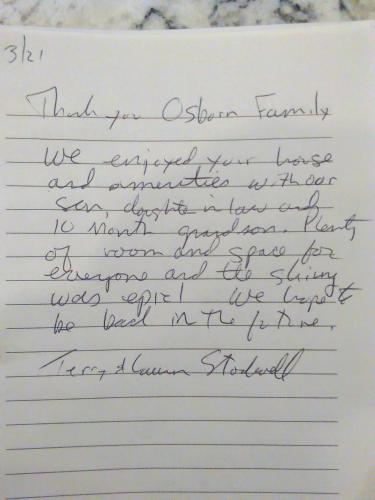 3/21
Thank you Osborn Family
We enjoyed your house
and amenities with our
son, daughter in law and
10 month grandson. Plenty
of room and space for
everyone and the skiing
was epic! We hope to
be back in the future.
Terry & Stockwell